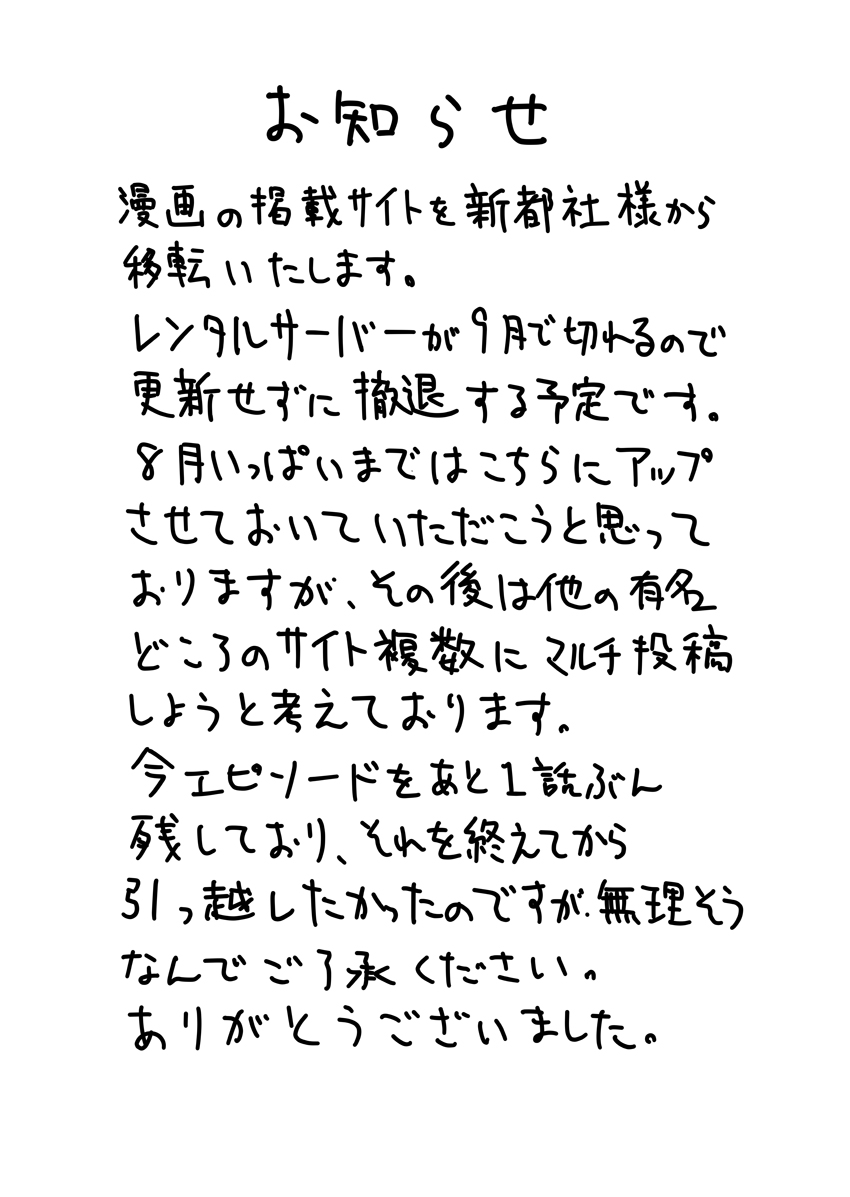 お知らせ
漫画の掲載サイトを新都社様から
移転いたします。
レンタルサーバーが9月で切れるので
更新せずに撤退する予定です。
8月いっぱいまではこちらにアップ
させておいていただこうと思って
おりますが、その後は他の有名
どころのサイト複数にマルチ投稿
しようと考えております。
今エピソードをあと1話ぶん
残しており、それを終えてから
引っ越ししたかったのですが、無理そう
なんでご了承ください。
ありがとうございました。